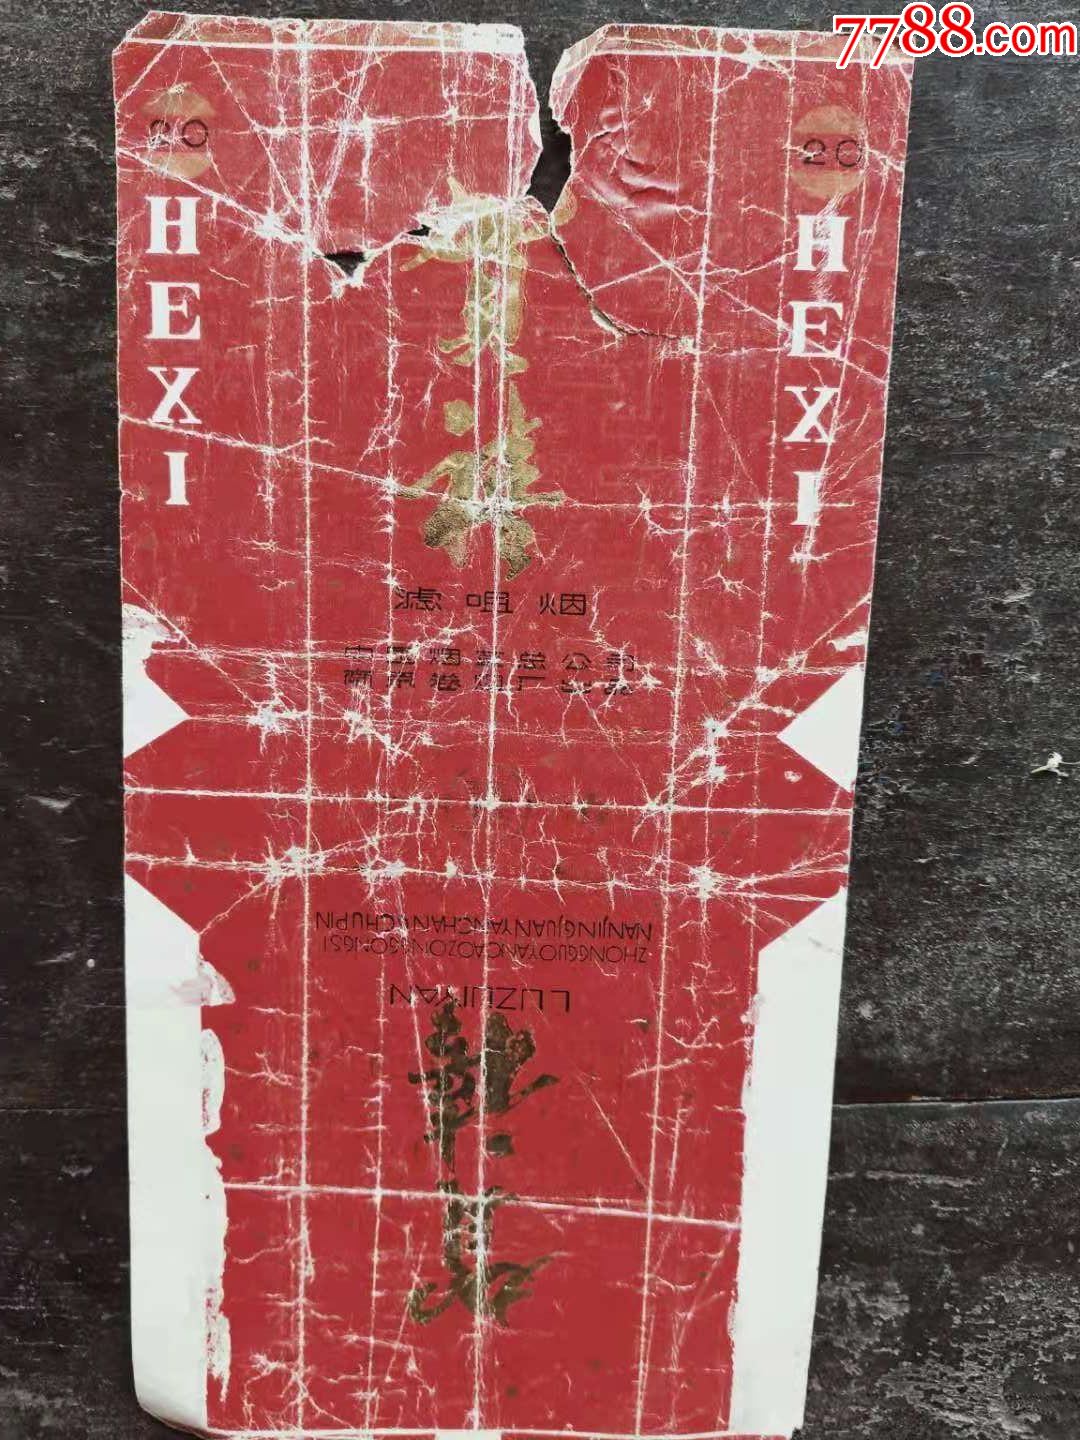 7788.com
20
HEXI
20
HEXI
賀禧
滤咀烟
中国烟草总公司
南京卷烟厂出品
NANJINGJUANYANCHANGCHUPIN
ZHONGGUOYANCAOZONGGONGSI
LUZUIYAN
賀禧